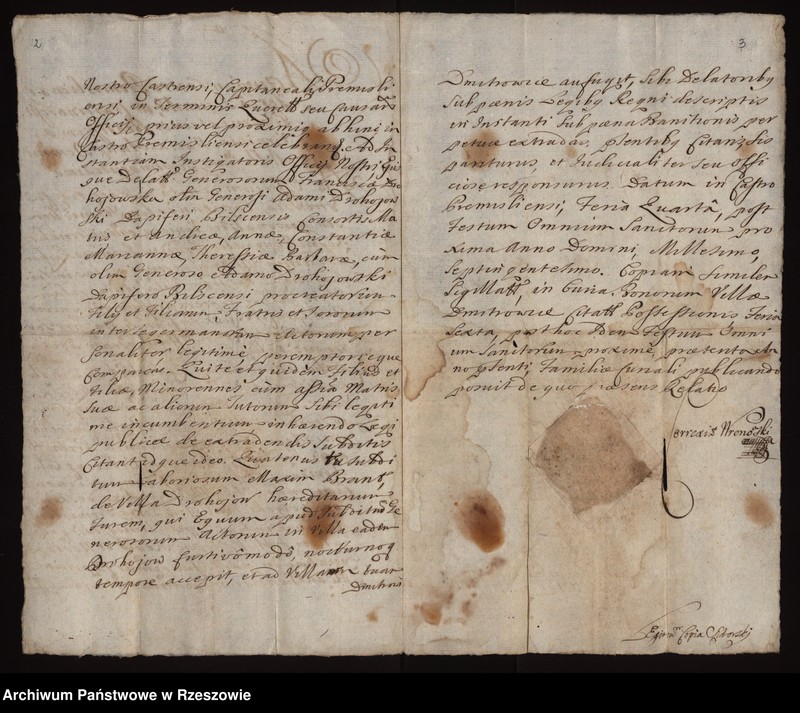 2
Nostro Castrensi, Capitaneali Premisli
ensi, in Terminis Querell seu Causarũ
Officij prius vel proximiq abhinc in
Castro Premisliensi celebrang. Ad In
stantiam Instigatoris Officij Nostri Eius
que Delatt Generosorum Francisca Dro
hojowska olim Generosi Adami Drohojow
ski Dapiferi Bilscensis Consortis Ma
tris et Andreæ, Annæ, Constantiæ
Mariannæ, Theressiæ Barbaræ, cum
olim Generoso Adamo Drohojowski
Dapifero Bilscensi procreatorum
Filij et Filiarum, Fratris et Sororum
inter se germanorum Actorum per
sonaliter legitime peremptorieque
Compareas. Quite et quidem Filius et
Filiæ, Minorennes cum assia Matris
suæ ac aliorum Tutorum sibi legiti
me incumbentium inhærendo Legi
publicæ de extradendis Subditis
Citant idque ideo. Quatenus tu Subdi
tum Laboriosum Maxim Brant,
de Villa Drohojow hæreditarium
Furem, qui Equum apud Subditum Ge
nerosorum Actorum in Villa eadem
Drohojow furtivô modô, nocturnoq
tempore accepit, et ad Villam tuam
Dmitrow
3
Dmitrowice aufugit, sibi Delatoriby
sub pænis Legiby Regni descriptis
in Instanti sub pæna Banitionis per
petuæ extradas, ptentiby Citanz sis
pariturus, et Iudicialiter seu offi
ciose responsurus. Datum in Castro
Premisliensi, Feria Quarta, post
Festum Omnium Sanctorum pro
xima Anno Domini, Millesimo,
Septingentesimo. Copiam similem
Sigillatt, in Curia Bonorum Villæ
Dmitrowice Citatt Possessionis Feria
Sexta, post hoc idem Festum Omni
um Sanctorum proxime præterita An
no psenti, Familiæ funali publicando
posuit de quo præsens Relatio
Wronoski
Copia
Archiwum Państwowe w Rzeszowie